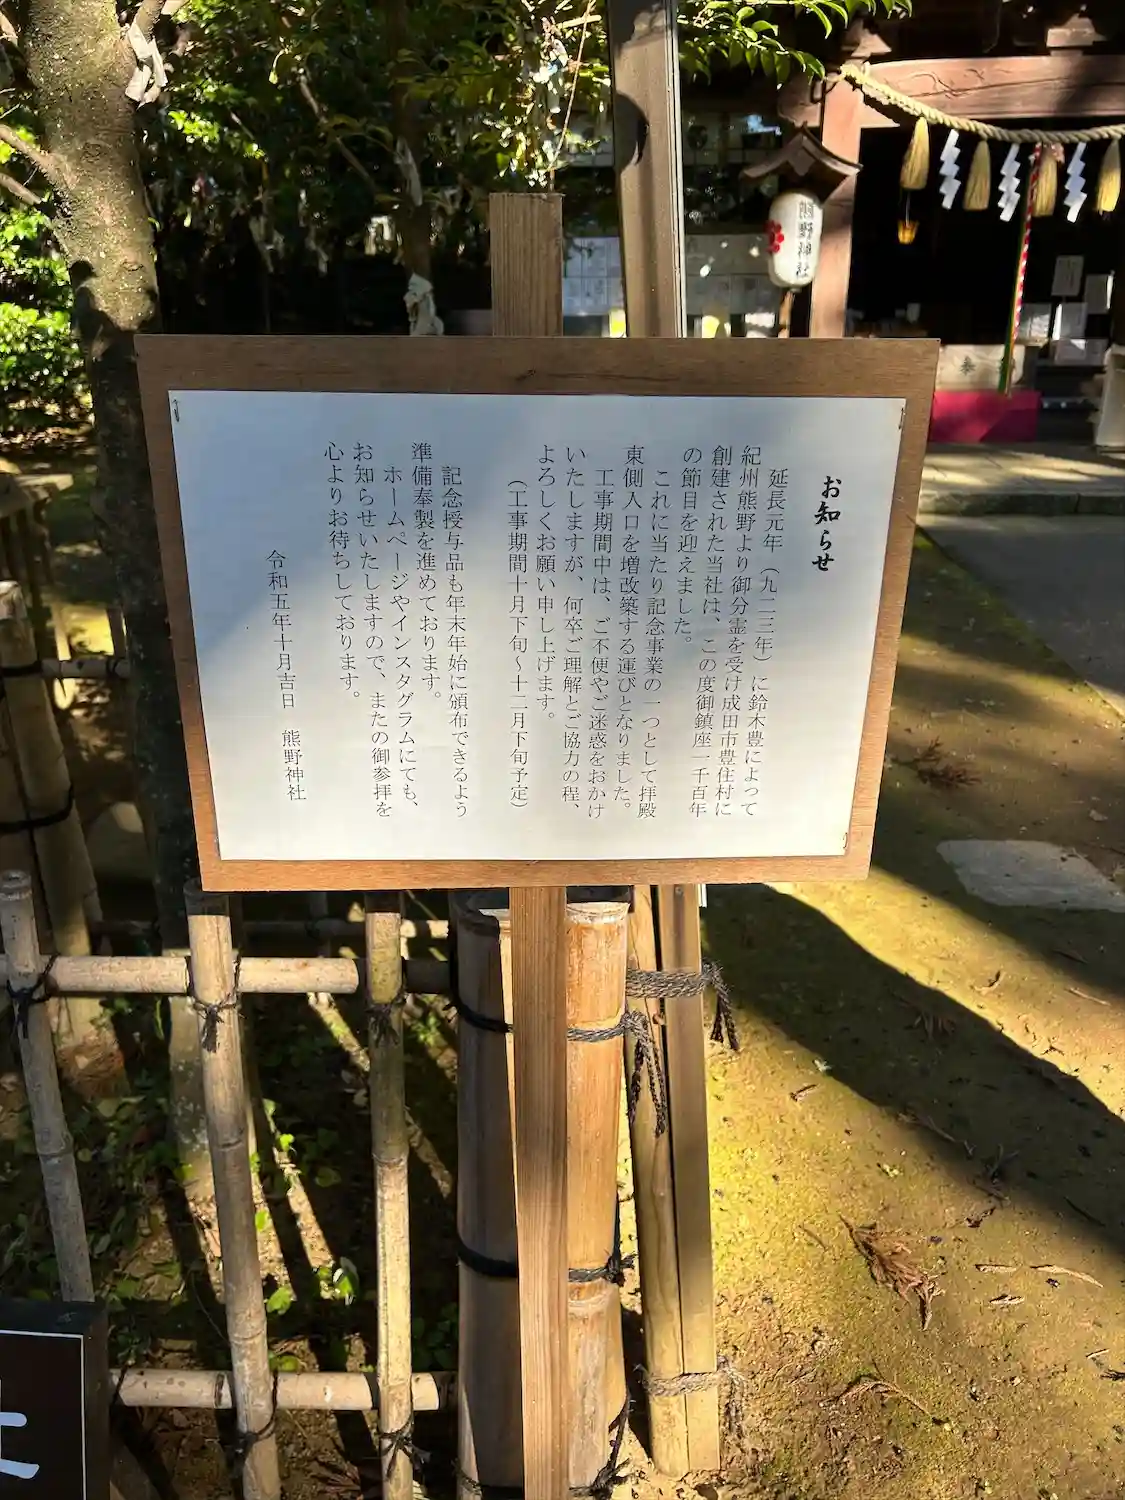 お知らせ
延長元年（九二三年）に鈴木豊によって
紀州熊野より御分霊を受け成田市豊住村に
創建された当社は、この度御鎮座一千百年
の節目を迎えました。
これに当たり記念事業の一つとして拝殿
東側入口を増改築する運びとなりました。
工事期間中は、ご不便やご迷惑をおかけ
いたしますが、何卒ご理解とご協力の程、
よろしくお願い申し上げます。
（工事期間十月下旬～十二月下旬予定）
記念授与品も年末年始に頒布できるよう
準備奉製を進めております。
ホームページやインスタグラムにても、
お知らせいたしますので、またの御参拝を
心よりお待ちしております。
令和五年十月吉日　熊野神社
奉